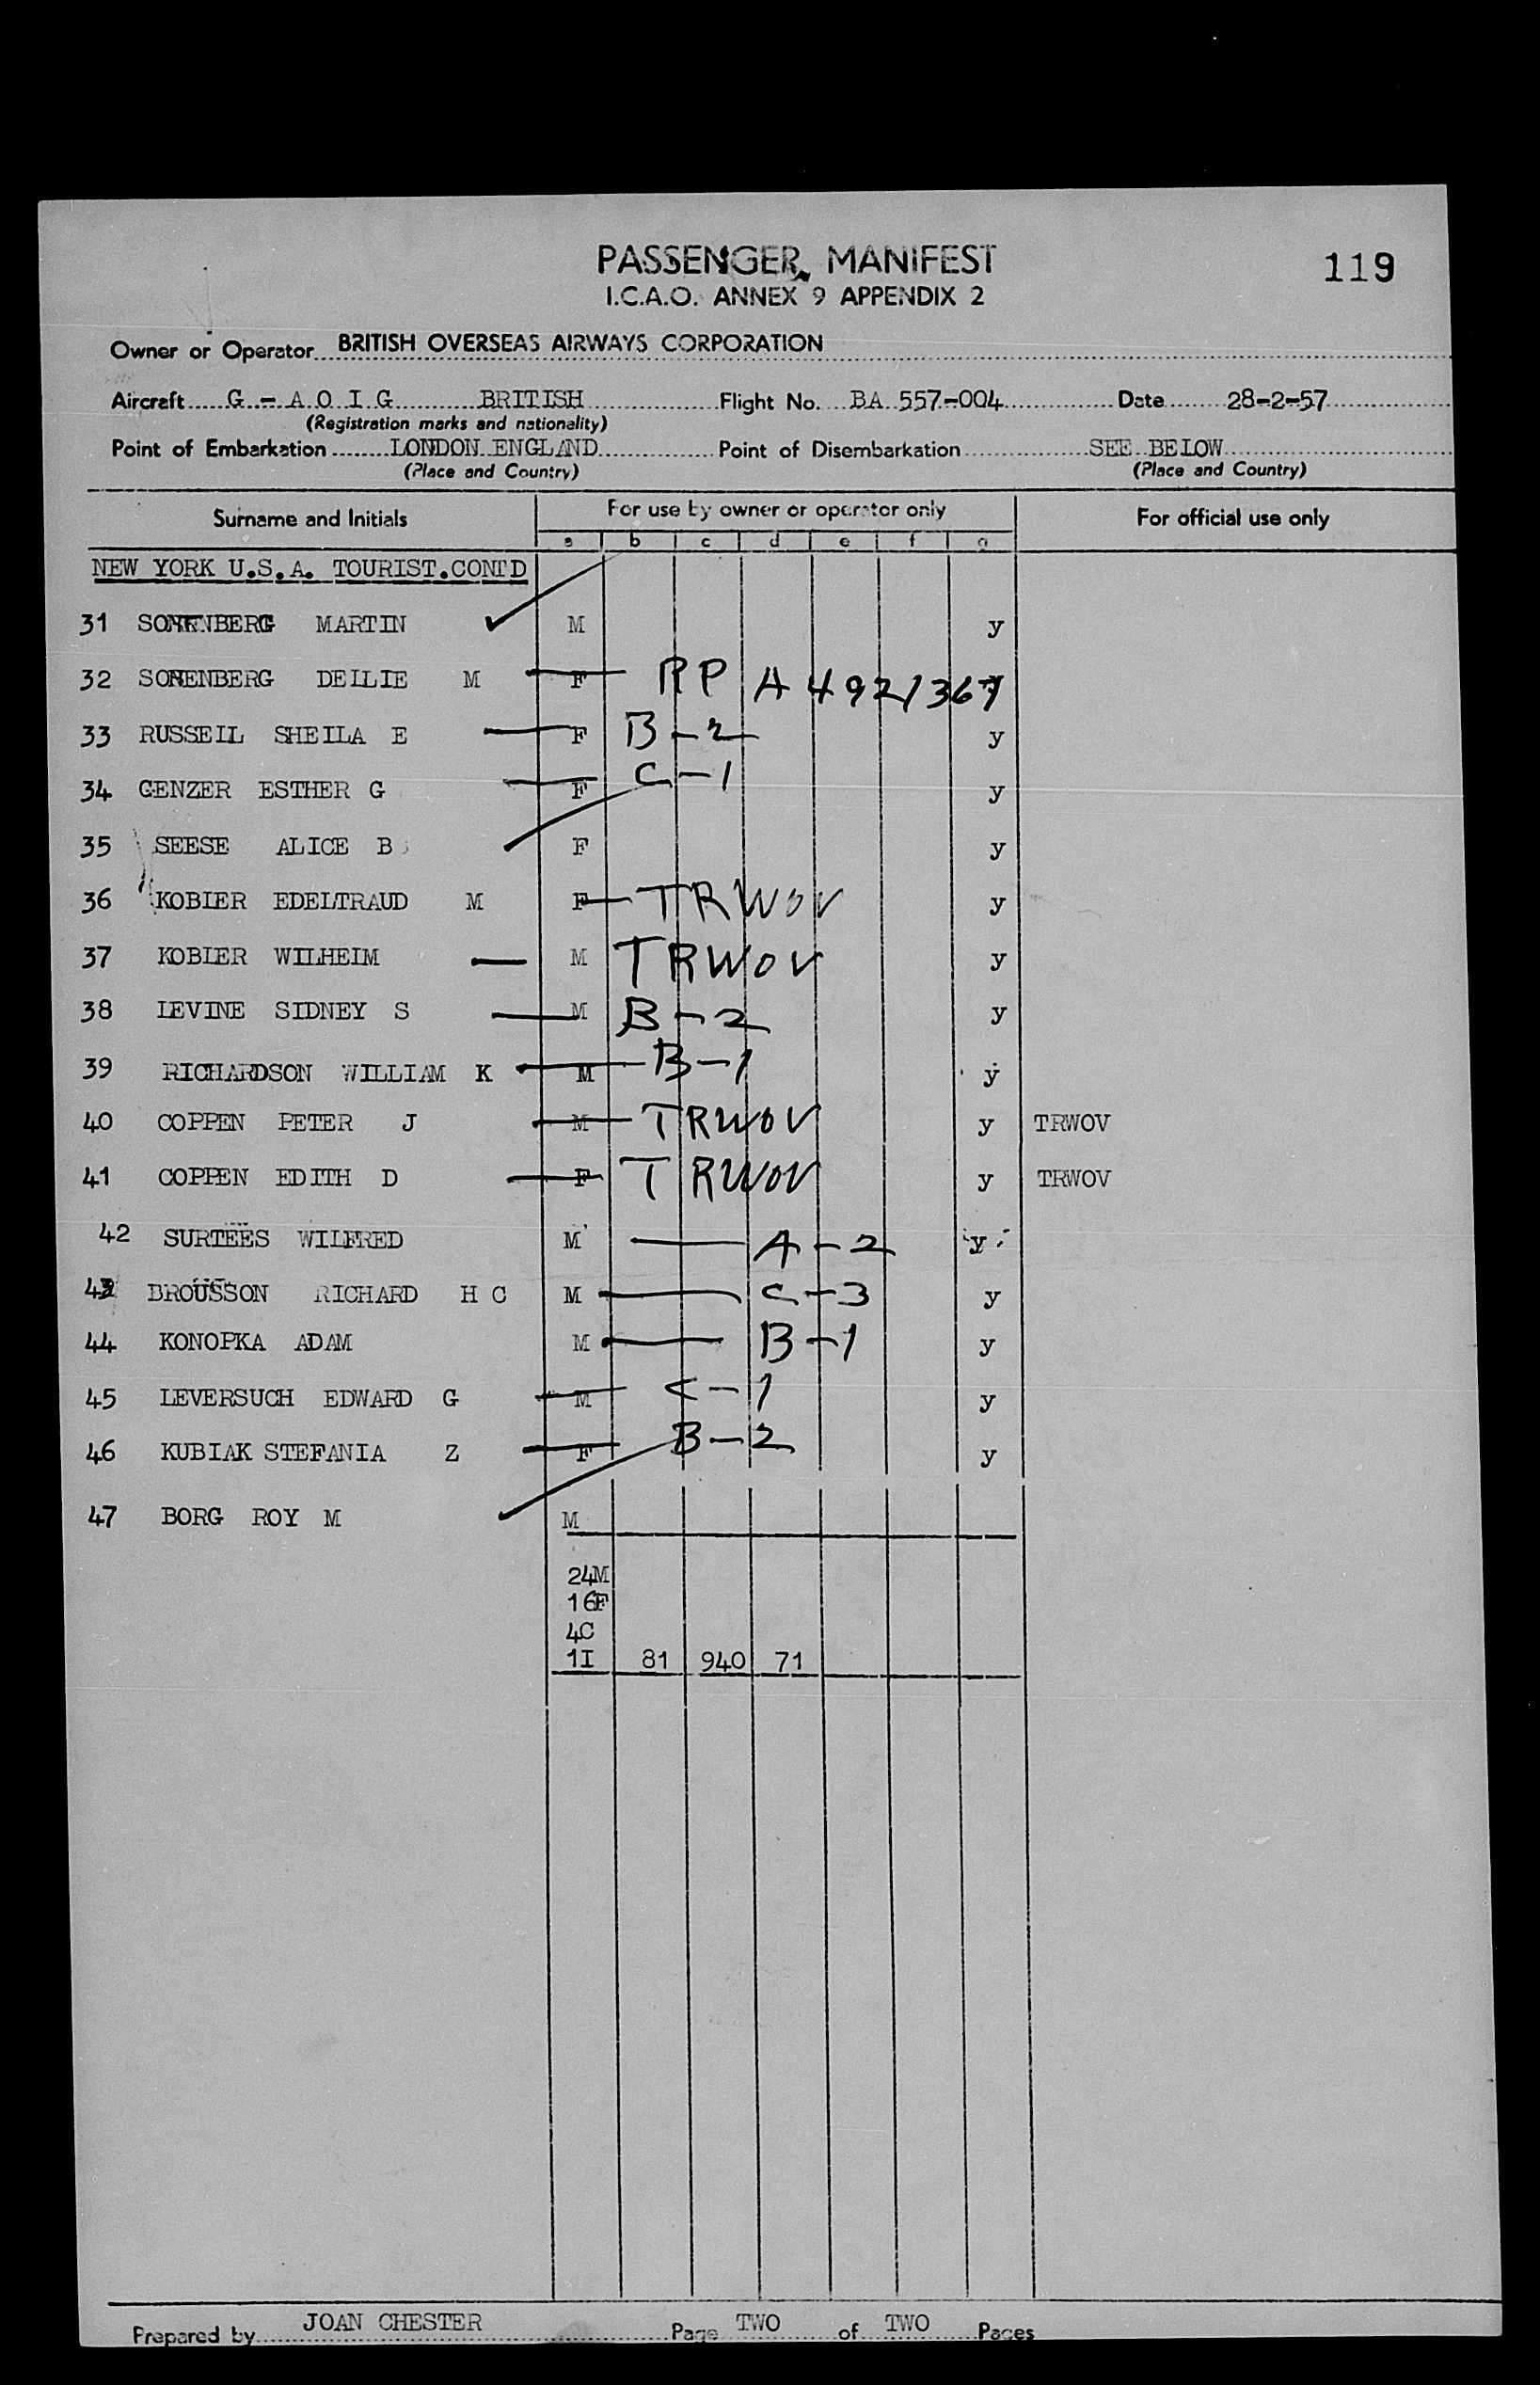 PASSENGER MANIFEST
119
I.C.A.O. ANNEX 9 APPENDIX 2
Owner or Operator BRITISH OVERSEAS AIRWAYS CORPORATION
Aircraft G - A O I G BRITISH Flight No. BA 557-004 Date 28-2-57
(Registration marks and nationality)
Point of Embarkation LONDON ENGLAND Point of Disembarkation SEE BELOW
(Place and Country) (Place and Country)
Surname and Initials For use by owner or operator only For official use only
a b c d e f g
NEW YORK U.S.A. TOURIST.CONTD
31 SONENBERG MARTIN M y
32 SONENBERG DELLIE M F RP A 4921367 y
33 RUSSELL SHEILA E F B-2 y
34 GENZER ESTHER G F C-1 y
35 SEESE ALICE B F y
36 KOBIER EDELTRAUD M F TRWOV y
37 KOBIER WILHEIM M TRWOV y
38 LEVINE SIDNEY S M B-2 y
39 RICHARDSON WILLIAM K M B-1 y
40 COPPEN PETER J M TRWOV y TRWOV
41 COPPEN EDITH D F TRWOV y TRWOV
42 SURTEES WILFRED M A-2 y
43 BROUSSON RICHARD H C M C-3 y
44 KONOPKA ADAM M B-1 y
45 LEVERSUCH EDWARD G M C-1 y
46 KUBIAK STEFANIA Z F B-2 y
47 BORG ROY M M
24M
16F
4C
1I 81 940 71
Prepared by JOAN CHESTER Page TWO of TWO Pages